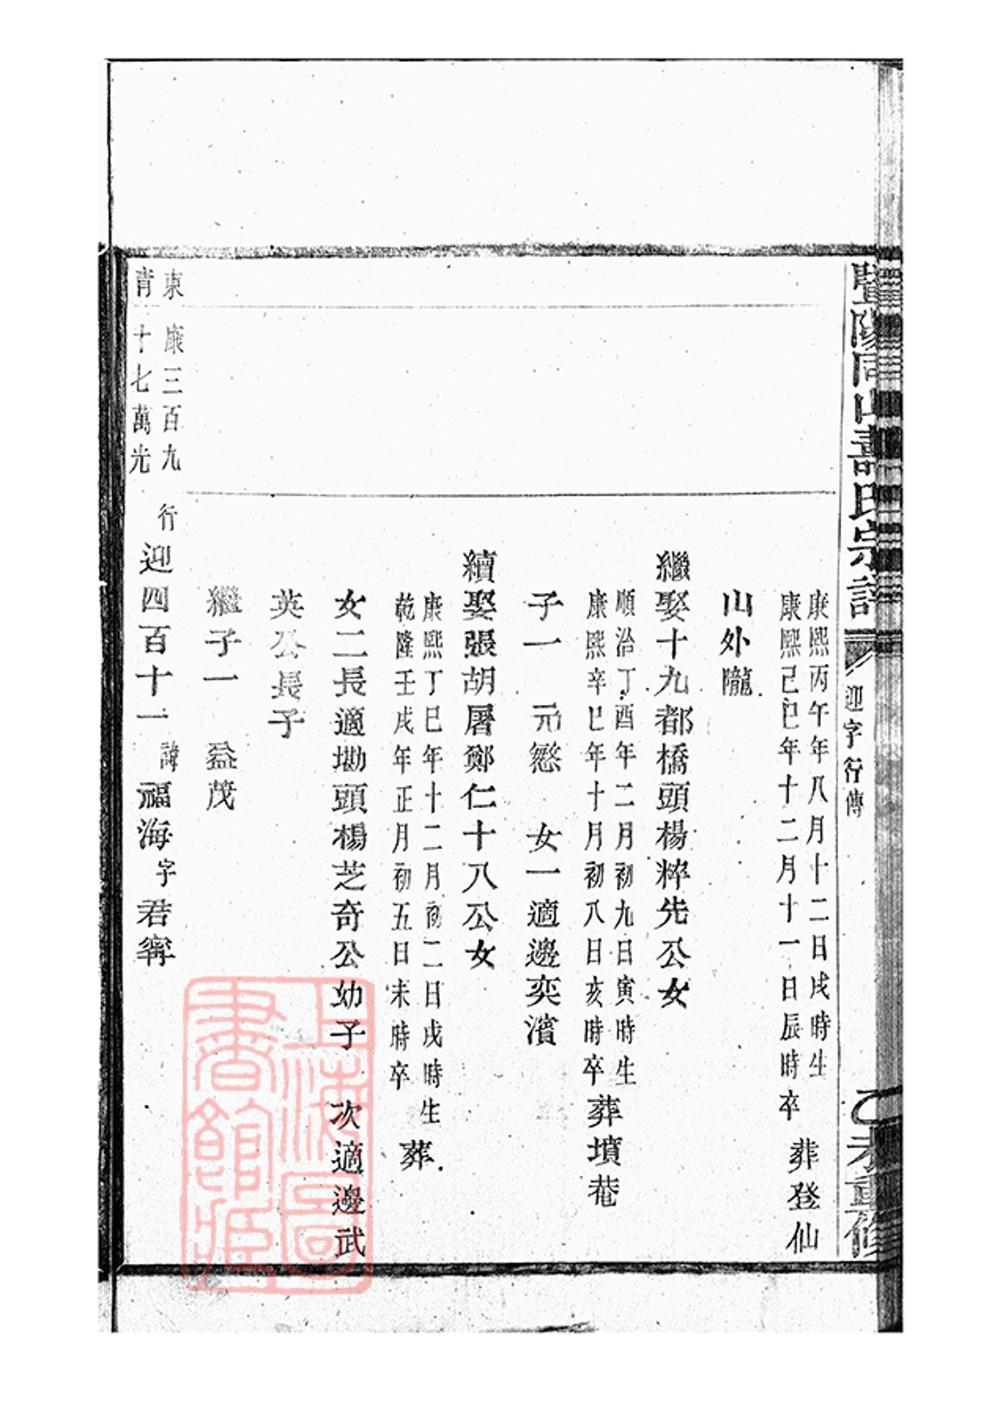 暨陽同山壽氏宗譜
迎字行傳
乙未重修
康熙丙午年八月十二日戌時生
康熙己巳年十二月十一日辰時卒
葬登仙
山外隴
繼娶十九都橋頭楊粹先公女
順治丁酉年二月初九日寅時生
康熙辛巳年十月初八日亥時卒
葬墳菴
子一 元慜 女一適邊奕濱
續娶張胡屠鄭仁十八公女
康熙丁巳年十二月初二日戌時生
乾隆壬戌年正月初五日未時卒
葬
女二長適坳頭楊芝奇公幼子 次適邊武
英公長子
繼子一 益茂
東 康三百九
背 十七萬光
行迎四百十一諱福海字君寧
上海圖書館藏